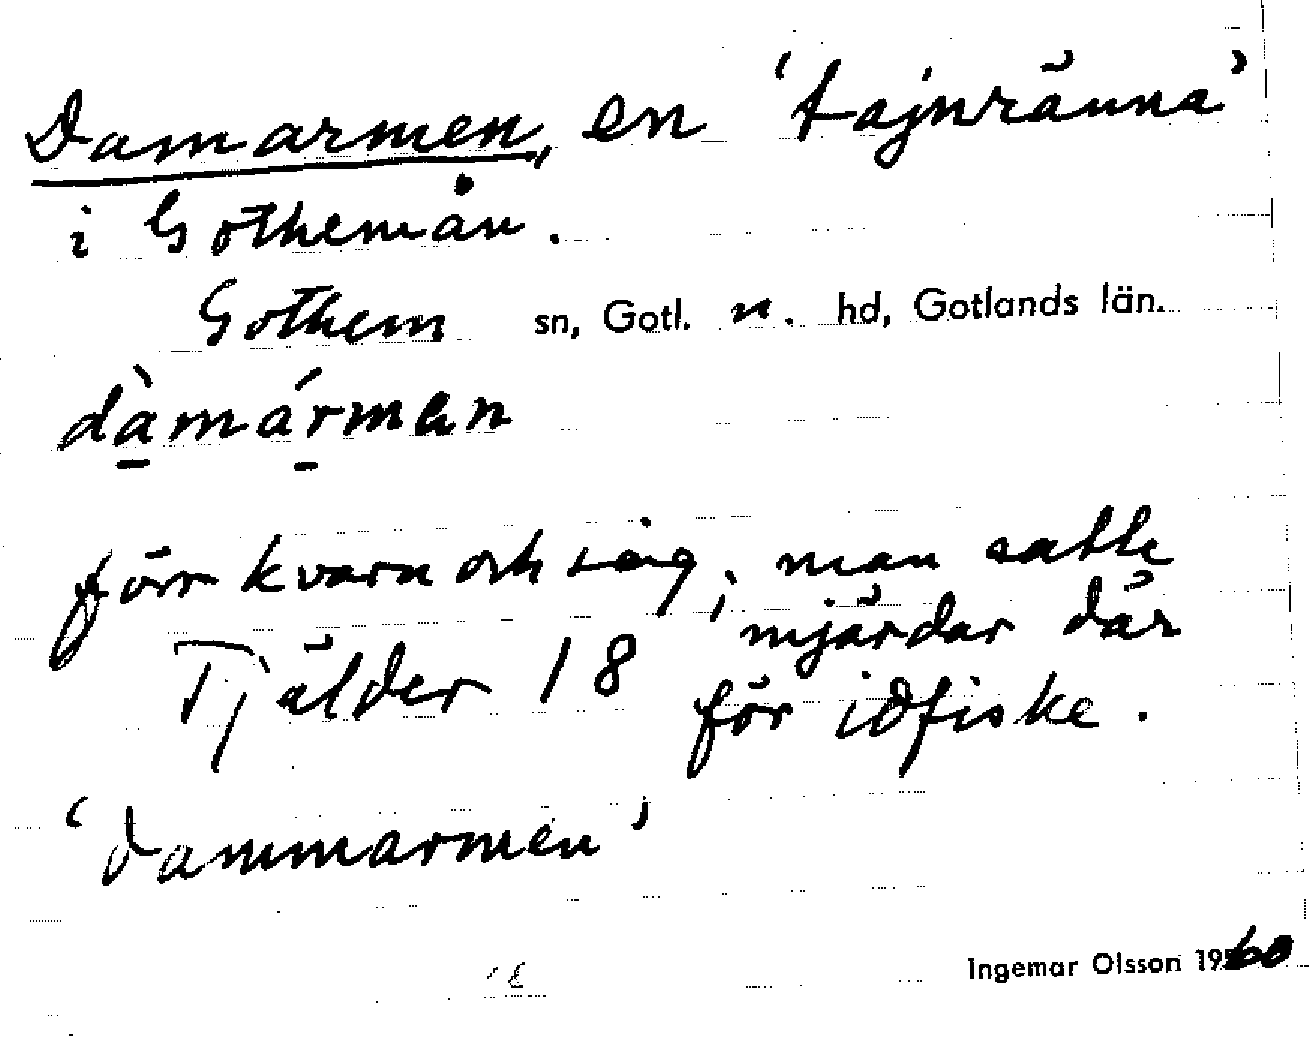 Damarmen, en 'tajnränna'
i Gothemån.
Gothem sn, Gotl. n. hd, Gotlands län.
dàmárman
förr kvarn och såg; man satte
mjärdar där
Tjälder 18 för idfiske.
'dammarmen'
Ingemar Olsson 1960